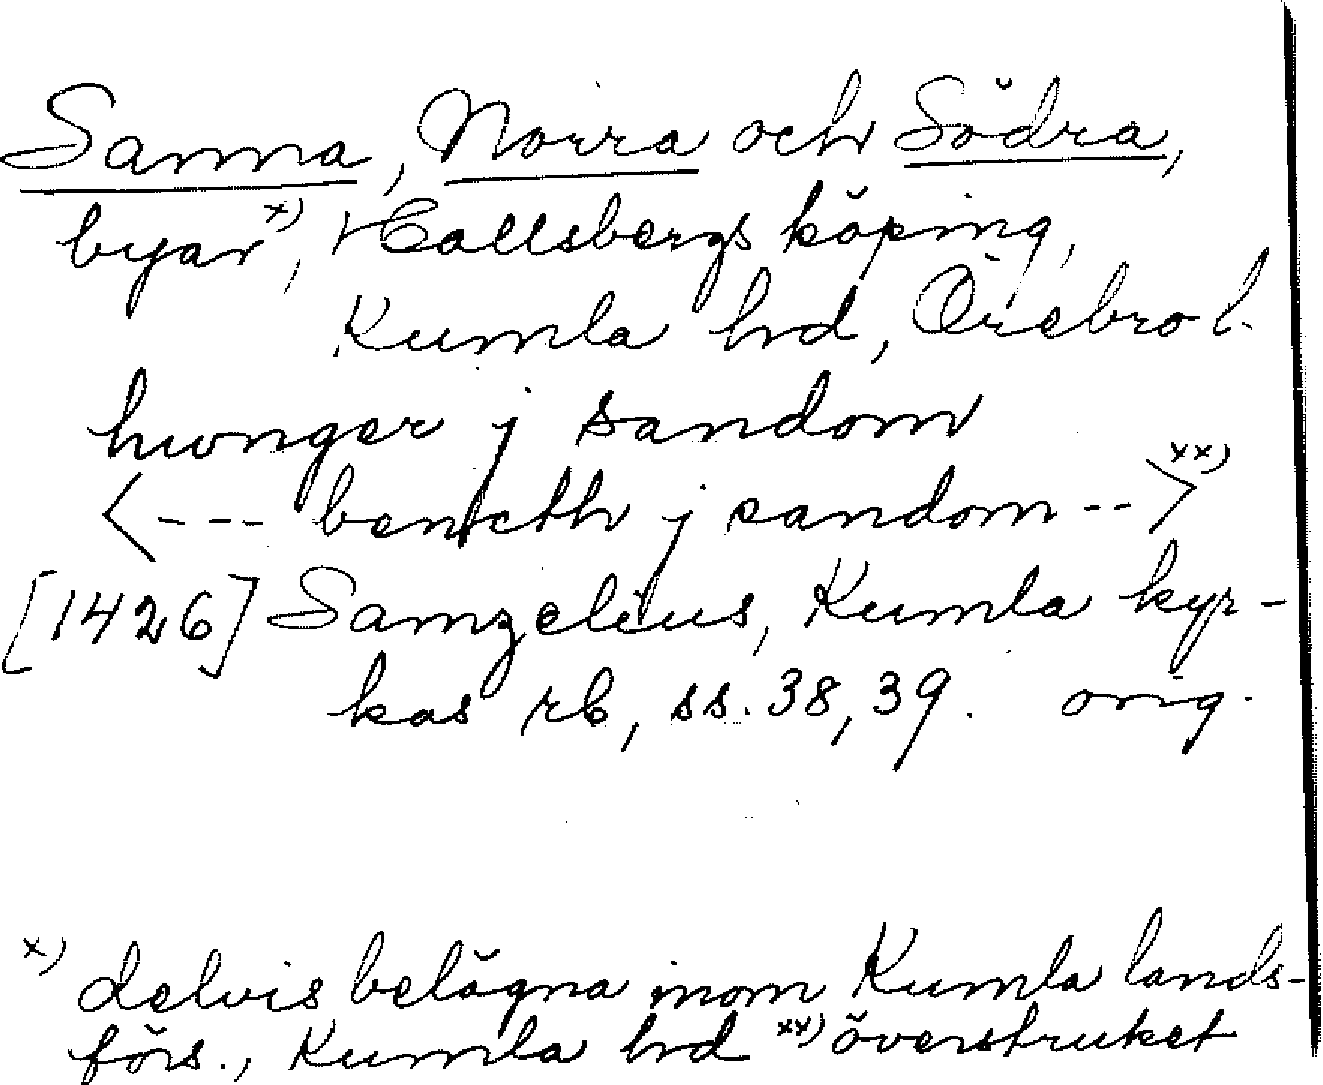 Sanna, Norra och Södra,
byar x), Hallsbergs köping,
Kumla hd, Örebro l.
hwnger j sandom
<--- benkth j sandom -->xx)
[1426] Samzelius, Kumla kyr-
kas rb, ss. 38, 39. orig.
x) delvis belägna inom Kumla lands-
förs., Kumla hd xx) överstruket